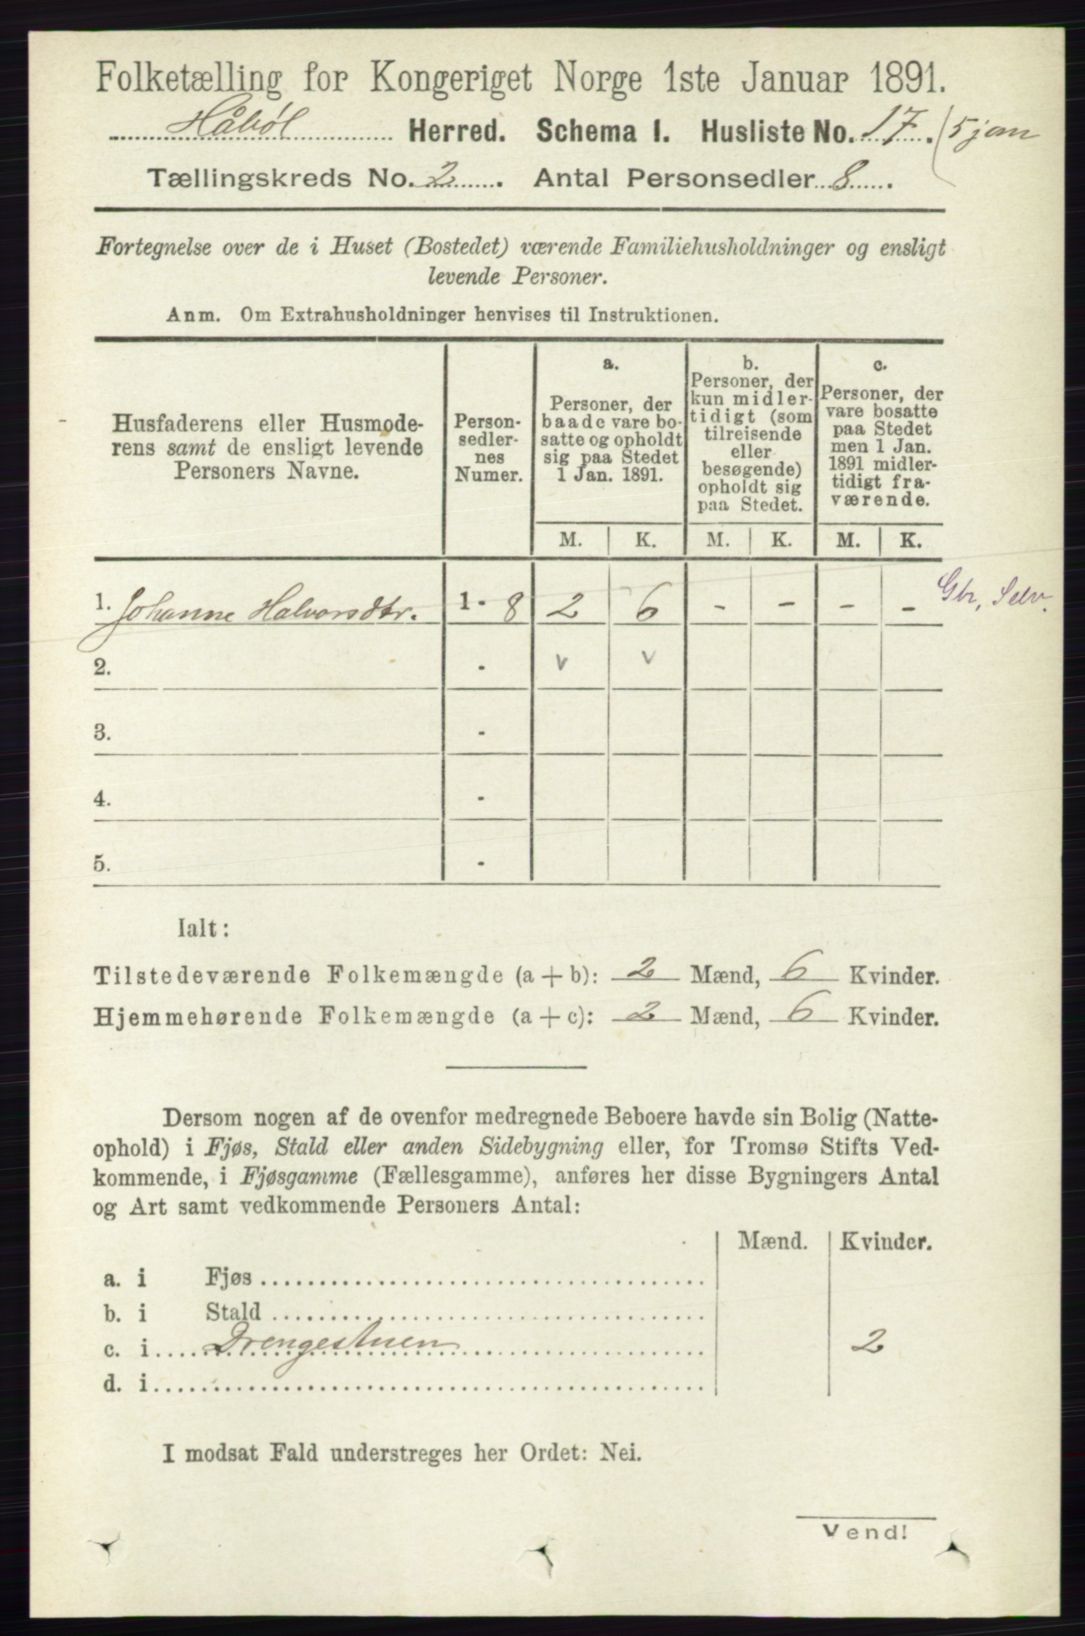 Folketælling for Kongeriget Norge 1ste Januar 1891.
Håbøl Herred. Schema I. Husliste No. 17. (5 jan
Tællingskreds No. 2. Antal Personsedler 8.
Fortegnelse over de i Huset (Bostedet) værende Familiehusholdninger og ensligt
levende Personer.
Anm. Om Extrahusholdninger henvises til Instruktionen.
Husfaderens eller Husmode-
rens samt de ensligt levende
Personers Navne.
Person-
sedler-
nes
Numer.
a.
Personer, der
baade vare bo-
satte og opholdt
sig paa Stedet
1 Jan. 1891.
b.
Personer, der
kun midler-
tidigt (som
tilreisende
eller
besøgende)
opholdt sig
paa Stedet.
c.
Personer, der
vare bosatte
paa Stedet
men 1 Jan.
1891 midler-
tidigt fra-
værende.
M. K. M. K. M. K.
1. Johanne Halvorsdtr. 1 - 8 2 6 - - - - Gbr, Selv.
2. - v v
3. -
4. -
5. -
Ialt:
Tilstedeværende Folkemængde (a + b): 2 Mænd, 6 Kvinder.
Hjemmehørende Folkemængde (a + c): 2 Mænd, 6 Kvinder.
Dersom nogen af de ovenfor medregnede Beboere havde sin Bolig (Natte-
ophold) i Fjøs, Stald eller anden Sidebygning eller, for Tromsø Stifts Ved-
kommende, i Fjøsgamme (Fællesgamme), anføres her disse Bygningers Antal
og Art samt vedkommende Personers Antal:
Mænd. Kvinder.
a. i Fjøs
b. i Stald
c. i Drengestuen 2
d. i
I modsat Fald understreges her Ordet: Nei.
Vend!